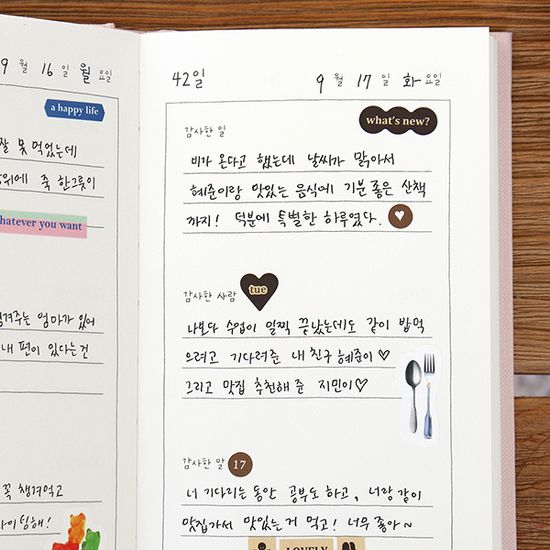 9월 16일 월요일
a happy life
잘 못 먹었는데
위에 죽 한그릇이
hatever you want
챙겨주는 엄마가 있어
내 편이 있다는건
꼭 챙겨먹고
42일
9월 17일 화요일
what's new?
감사한 일
비가 온다고 했는데 날씨가 맑아서
혜준이랑 맛있는 음식에 기분 좋은 산책
까지! 덕분에 특별한 하루였다.
감사한 사람
tue
나보다 수업이 일찍 끝났는데도 같이 밥먹
으려고 기다려준 내 친구 혜준이♡
그리고 맛집 추천해 준 지민이♡
감사한 말
17
너 기다리는 동안 공부도 하고, 너랑 같이
맛집가서 맛있는 거 먹고! 너무 좋아~
LOVELY